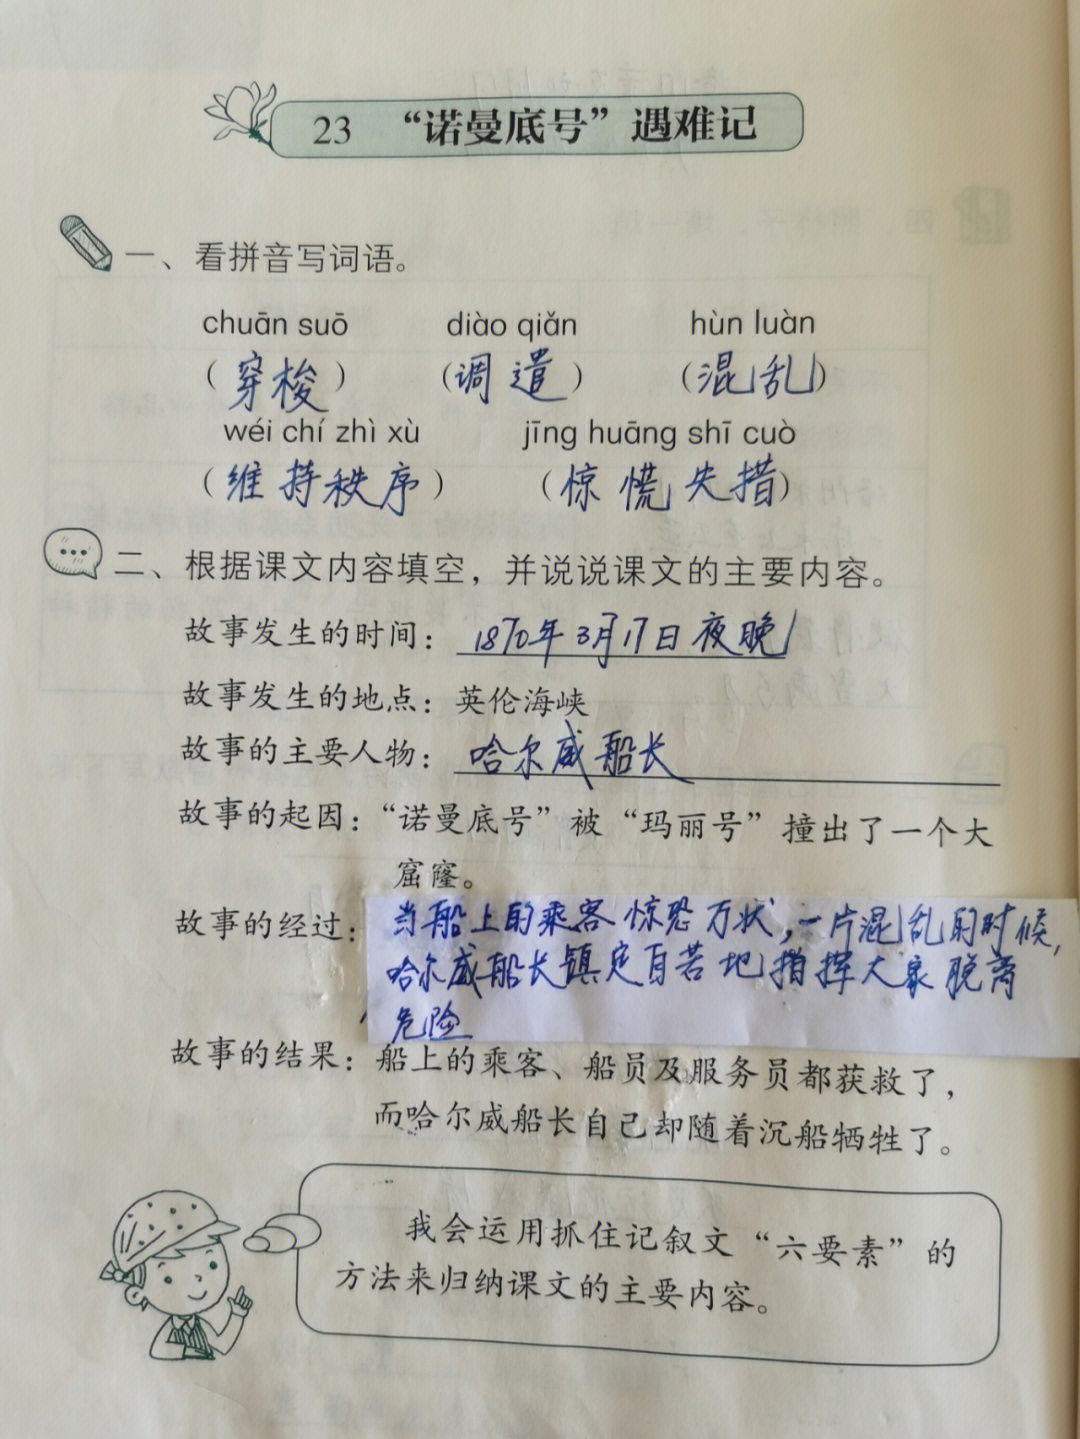 23 “诺曼底号”遇难记
一、看拼音写词语。
chuān suō diào qiǎn hùn luàn
（穿梭）（调遣）（混乱）
wéi chí zhì xù jīng huāng shī cuò
（维持秩序）（惊慌失措）
二、根据课文内容填空，并说说课文的主要内容。
故事发生的时间：1870年3月17日夜晚
故事发生的地点：英伦海峡
故事的主要人物：哈尔威船长
故事的起因：“诺曼底号”被“玛丽号”撞出了一个大
窟窿。
故事的经过：当船上的乘客惊恐万状，一片混乱的时候，
哈尔威船长镇定自若地指挥大家脱离
危险
故事的结果：船上的乘客、船员及服务员都获救了，
而哈尔威船长自己却随着沉船牺牲了。
我会运用抓住记叙文“六要素”的
方法来归纳课文的主要内容。